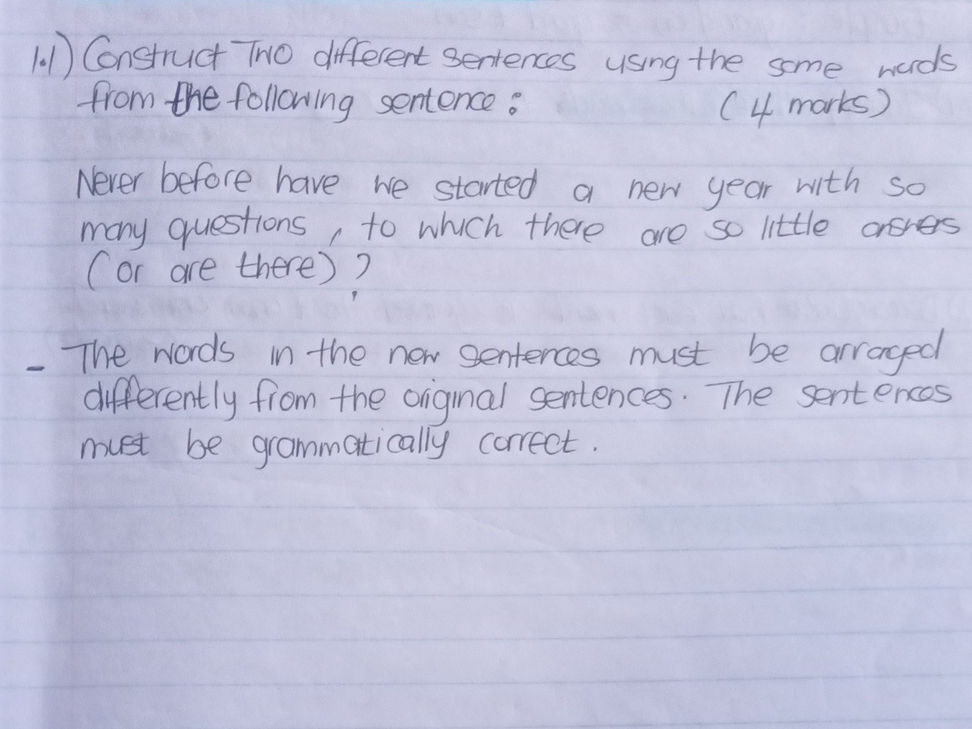 1.1) Construct Two different sentences using the same words
from the following sentence : (4 marks)
Never before have we started a new year with so
many questions, to which there are so little answers
(or are there) ?
- The words in the new sentences must be arraged
differently from the original sentences. The sentences
must be grammatically correct.